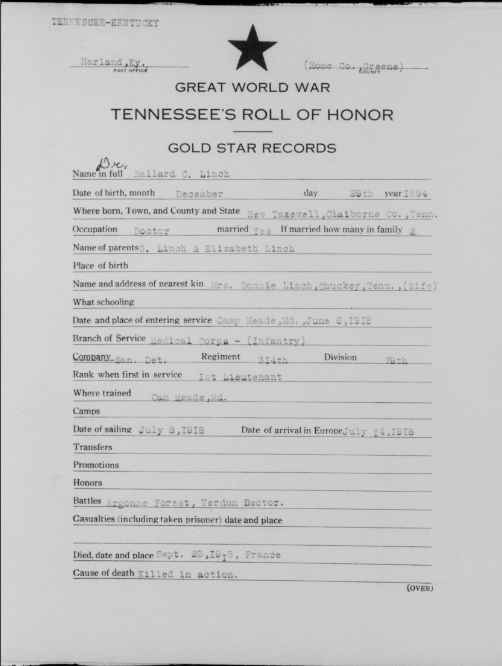 TENNESSEE-KENTUCKY
Harland,Ky. (Home Co.,Greene)
POST OFFICE COUNTY
GREAT WORLD WAR
TENNESSEE'S ROLL OF HONOR
GOLD STAR RECORDS
Dr.
Name in full Ballard C. Linch
Date of birth, month December day 28th year 1894
Where born, Town, and County and State New Tazewell,Claiborne Co.,Tenn.
Occupation Doctor married Yes If married how many in family
Name of parents C. Linch & Elizabeth Linch
Place of birth
Name and address of nearest kin Mrs. Bonnie Linch,Chuckey,Tenn.,(Wife)
What schooling
Date and place of entering service Camp Meade,Md.,June 6,1918
Branch of Service Medical Corps - (Infantry)
Company San. Det. Regiment 314th Division 79th
Rank when first in service 1st Lieutenant
Where trained Cam Meade,Md.
Camps
Date of sailing July 8,1918 Date of arrival in Europe July 14,1918
Transfers
Promotions
Honors
Battles Argonne Forest, Verdun Sector.
Casualties (including taken prisoner) date and place
Died, date and place Sept. 29,1918, France
Cause of death Killed in action.
(OVER)